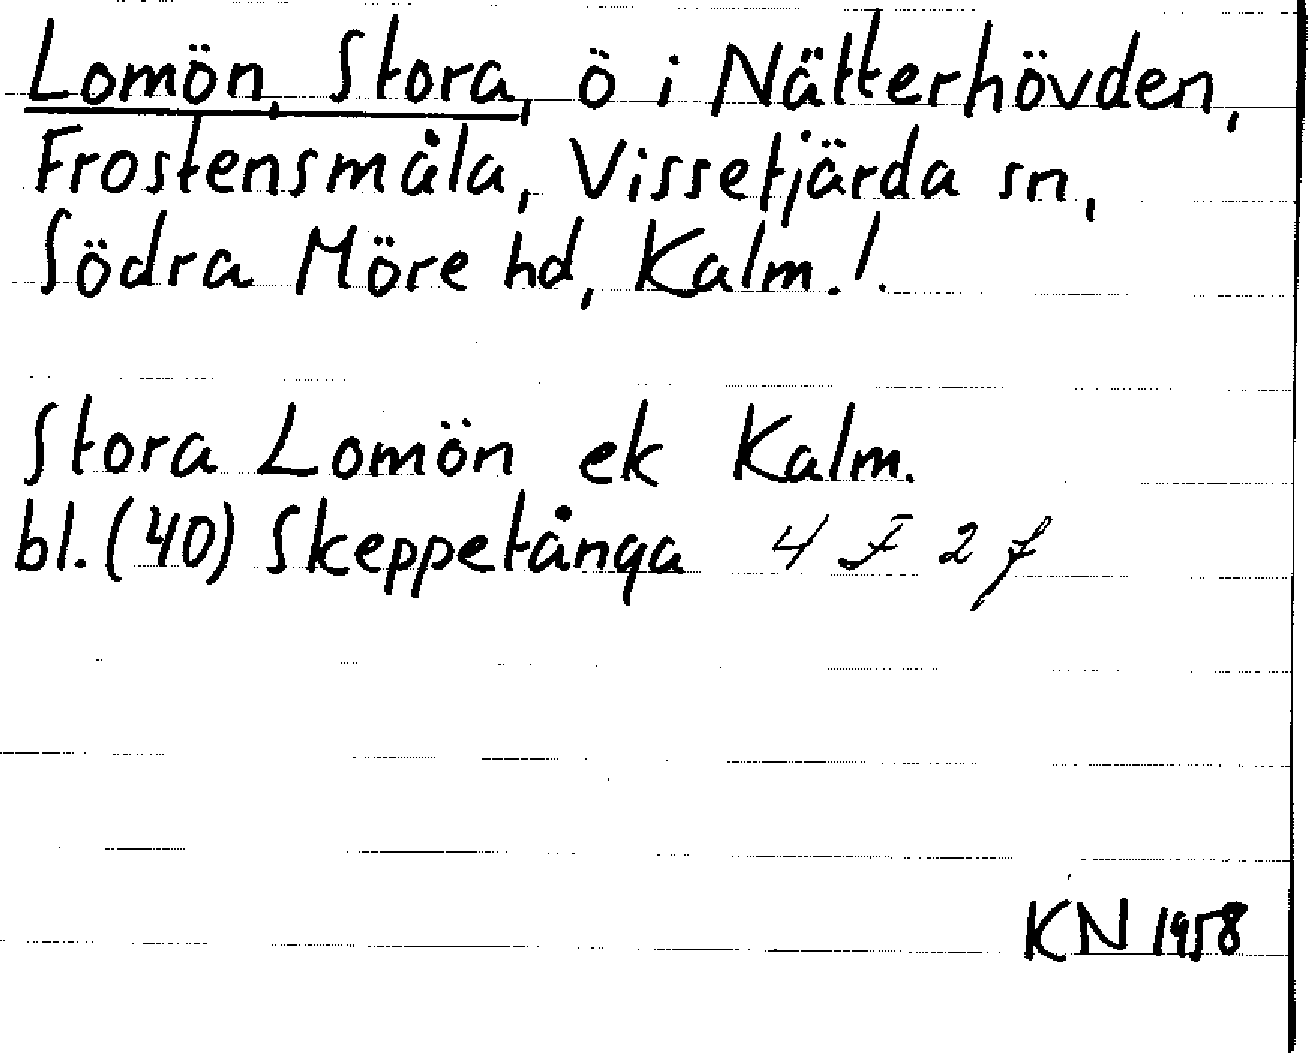 Lomön, Stora, ö i Nätterhövden,
Frostensmåla, Vissefjärda sn,
Södra Möre hd, Kalm. !.
Stora Lomön ek Kalm.
bl. (40) Skeppetånga 4 F 2 f
KN 1958